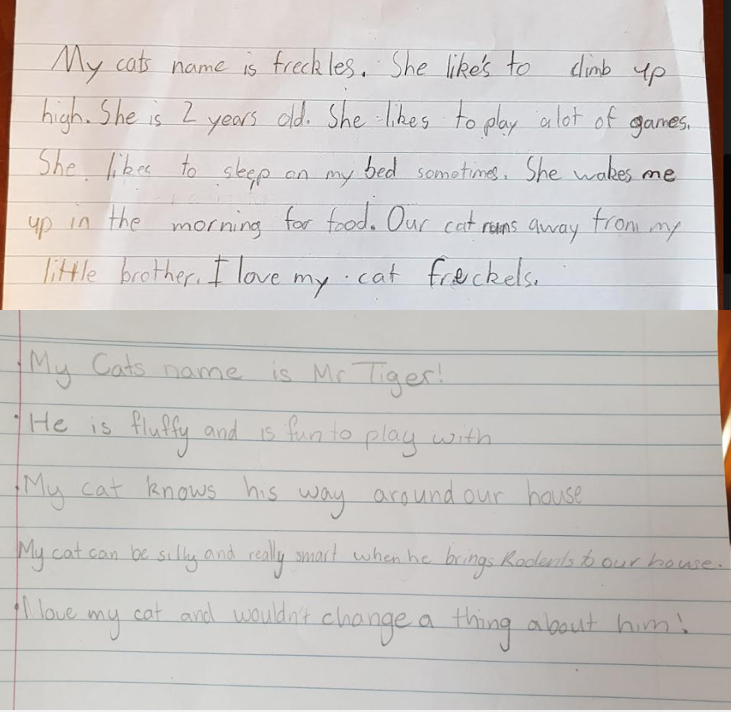 My cats name is freckles. She like's to climb up
high. She is 2 years old. She likes to play alot of games.
She likes to sleep on my bed somotimes. She wakes me
up in the morning for food. Our cat runs away from my
little brother. I love my cat freckels.
My Cats name is Mr Tiger!
He is fluffy and is fun to play with
My cat knows his way around our house
My cat can be silly and really smart when he brings Rodents to our house.
I love my cat and wouldn't change a thing about him!